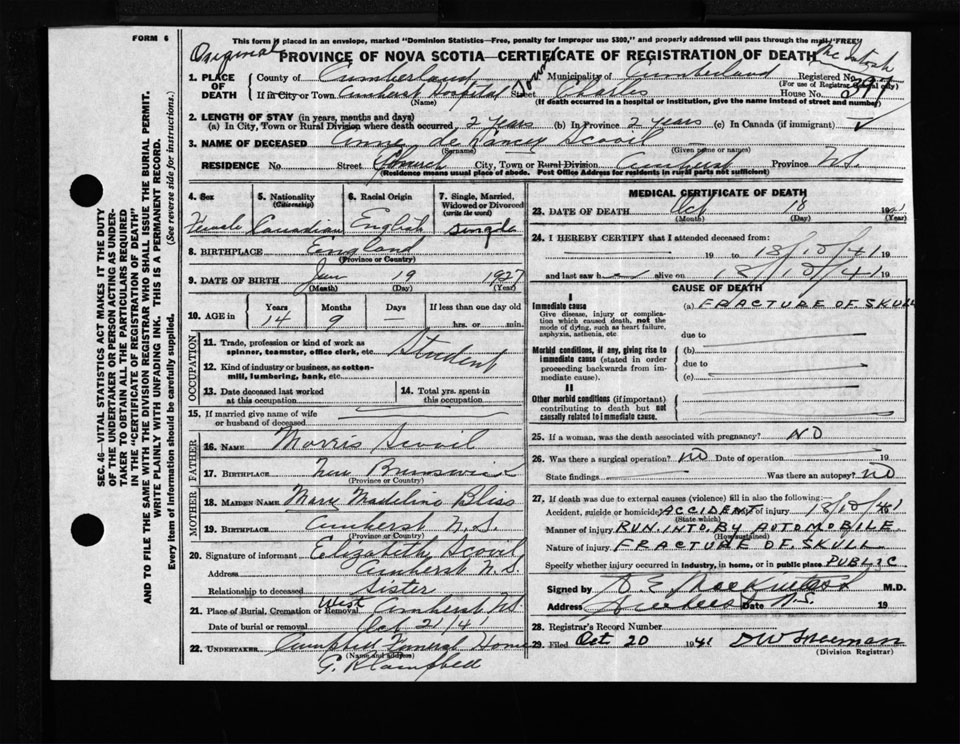 FORM 6
This form if placed in an envelope, marked "Dominion Statistics—Free, penalty for improper use $300," and properly addressed will pass through the mail "FREE"
Original PROVINCE OF NOVA SCOTIA—CERTIFICATE OF REGISTRATION OF DEATH
1. PLACE OF DEATH
County of Cumberland Municipality of Cumberland Registered No. 397
(For use of Registrar General only)
If in City or Town Amherst Hospital Street Charles House No.
(Name) (If death occurred in a hospital or institution, give the name instead of street and number)
2. LENGTH OF STAY (in years, months and days)
(a) In City, Town or Rural Division where death occurred 2 years (b) In Province 2 years (c) In Canada (if immigrant) ✓
3. NAME OF DECEASED Anne de Nancy Scovil
(Surname) (Given name or names)
RESIDENCE No Street Church City, Town or Rural Division Amherst Province N.S.
(Residence means usual place of abode. Post Office Address for residents in rural parts not sufficient)
4. Sex Female
5. Nationality (Citizenship) Canadian
6. Racial Origin English
7. Single, Married, Widowed or Divorced (write the word) Single
8. BIRTHPLACE England
(Province or Country)
9. DATE OF BIRTH Jan 19 1927
(Month) (Day) (Year)
10. AGE in Years Months Days If less than one day old
14 9 — hrs. or min.
OCCUPATION
11. Trade, profession or kind of work as spinner, teamster, office clerk, etc. Student
12. Kind of industry or business, as cotton-mill, lumbering, bank, etc.
13. Date deceased last worked at this occupation
14. Total yrs. spent in this occupation
15. If married give name of wife or husband of deceased
FATHER
16. NAME Morris Scovil
17. BIRTHPLACE New Brunswick
(Province or Country)
MOTHER
18. MAIDEN NAME Mary Madeline Bliss
19. BIRTHPLACE Amherst N.S.
(Province or Country)
20. Signature of informant Elizabeth Scovil
Address Amherst N.S.
Relationship to deceased Sister
21. Place of Burial, Cremation or Removal West Amherst N.S.
Date of burial or removal Oct 21/41
22. UNDERTAKER Campbell Funeral Home
(Name and address)
G. R. Campbell
MEDICAL CERTIFICATE OF DEATH
23. DATE OF DEATH Oct 18 1941
(Month) (Day) (Year)
24. I HEREBY CERTIFY that I attended deceased from:
19 to 18/10/41 19
and last saw her alive on 18/10/41 19
CAUSE OF DEATH
I
Immediate cause (a) FRACTURE OF SKULL
Give disease, injury or complication which caused death, not the mode of dying, such as heart failure, asphyxia, asthenia, etc
due to
Morbid conditions, if any, giving rise to immediate cause (stated in order proceeding backwards from immediate cause).
(b)
due to
(c)
II
Other morbid conditions (if important) contributing to death but not causally related to immediate cause.
25. If a woman, was the death associated with pregnancy? NO
26. Was there a surgical operation? NO Date of operation 19
State findings Was there an autopsy? NO
27. If death was due to external causes (violence) fill in also the following:
Accident, suicide or homicide ACCIDENT Date of injury 18/10/41
(State which)
Manner of injury RUN INTO BY AUTOMOBILE
(How sustained)
Nature of injury FRACTURE OF SKULL
Specify whether injury occurred in industry, in home, or in public place PUBLIC
Signed by M.D.
Address Amherst N.S. Date 19
28. Registrar's Record Number
29. Filed Oct 20 1941
(Division Registrar)
SEC. 46—VITAL STATISTICS ACT MAKES IT THE DUTY OF THE UNDERTAKER OR PERSON ACTING AS UNDERTAKER TO OBTAIN ALL THE PARTICULARS REQUIRED IN THE "CERTIFICATE OF REGISTRATION OF DEATH"
AND TO FILE THE SAME WITH THE DIVISION REGISTRAR WHO SHALL ISSUE THE BURIAL PERMIT.
WRITE PLAINLY WITH UNFADING INK. THIS IS A PERMANENT RECORD.
Every item of information should be carefully supplied. (See reverse side for instructions.)